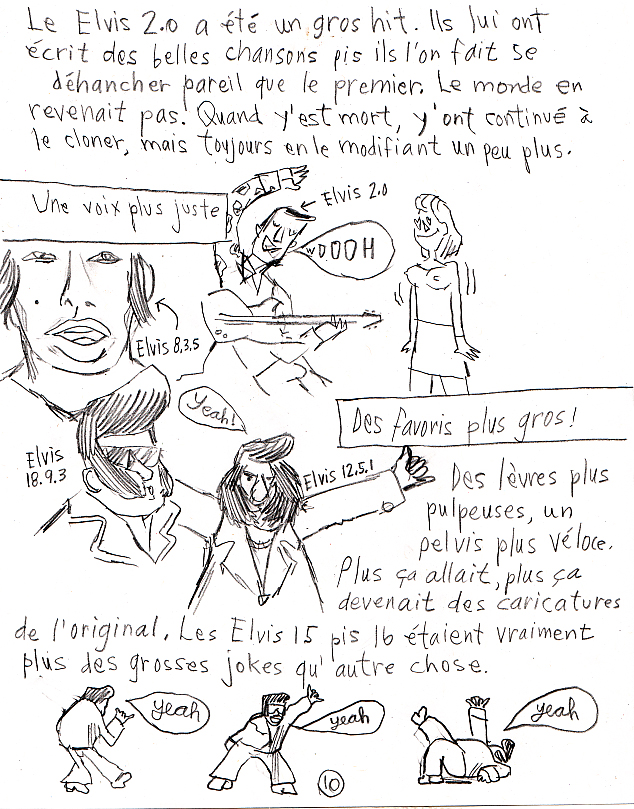 Le Elvis 2.0 a été un gros hit. Ils lui ont
écrit des belles chansons pis ils l'on fait se
déhancher pareil que le premier. Le monde en
revenait pas! Quand y'est mort, y'ont continué à
le cloner, mais toujours en le modifiant un peu plus.
Une voix plus juste
Elvis 2.0
WOOOH
Elvis 8.3.5
Yeah!
Des favoris plus gros!
Elvis
18.9.3
Elvis 12.5.1
Des lèvres plus
pulpeuses, un
pelvis plus véloce.
Plus ça allait, plus ça
devenait des caricatures
de l'original. Les Elvis 15 pis 16 étaient vraiment
plus des grosses jokes qu'autre chose.
yeah
yeah
yeah
10